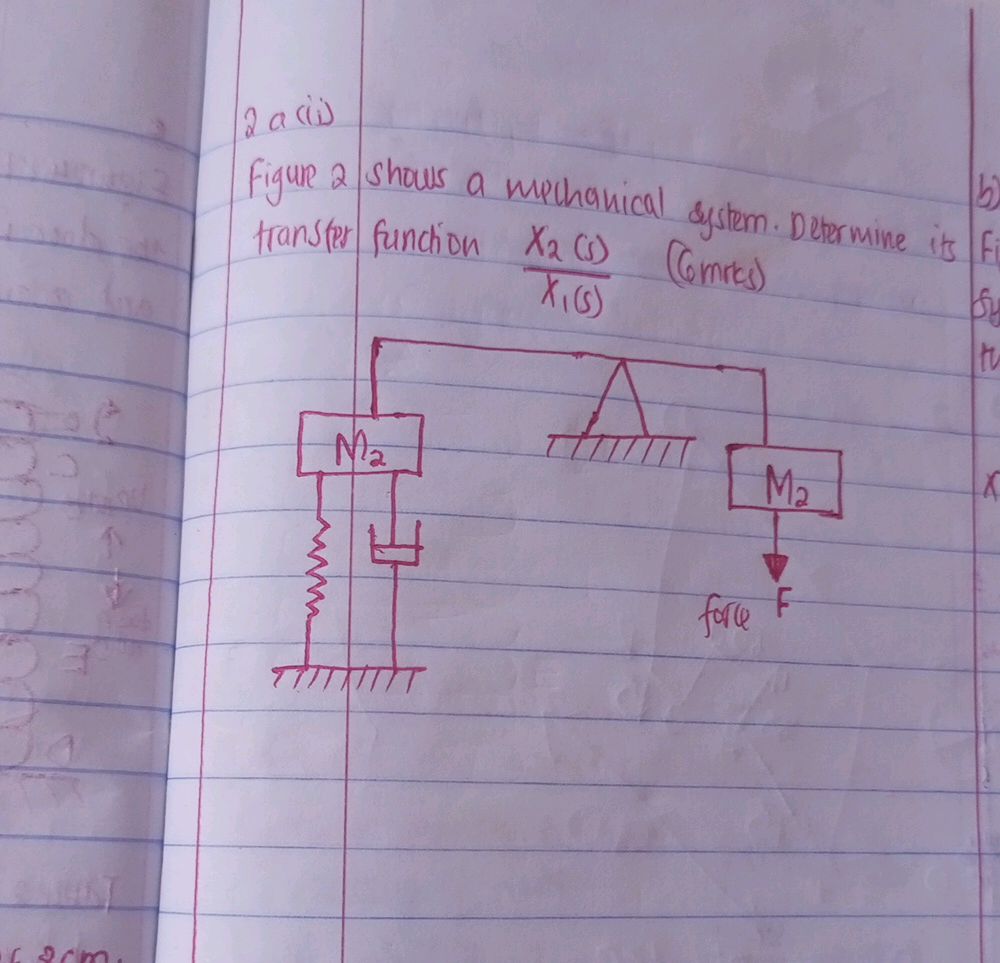 2 a (ii)
Figure 2 shows a mechanical system. Determine its
transfer function X2 (s) / X1(s) (6mrks)
M2
M2
force F
b)
x
2cm.